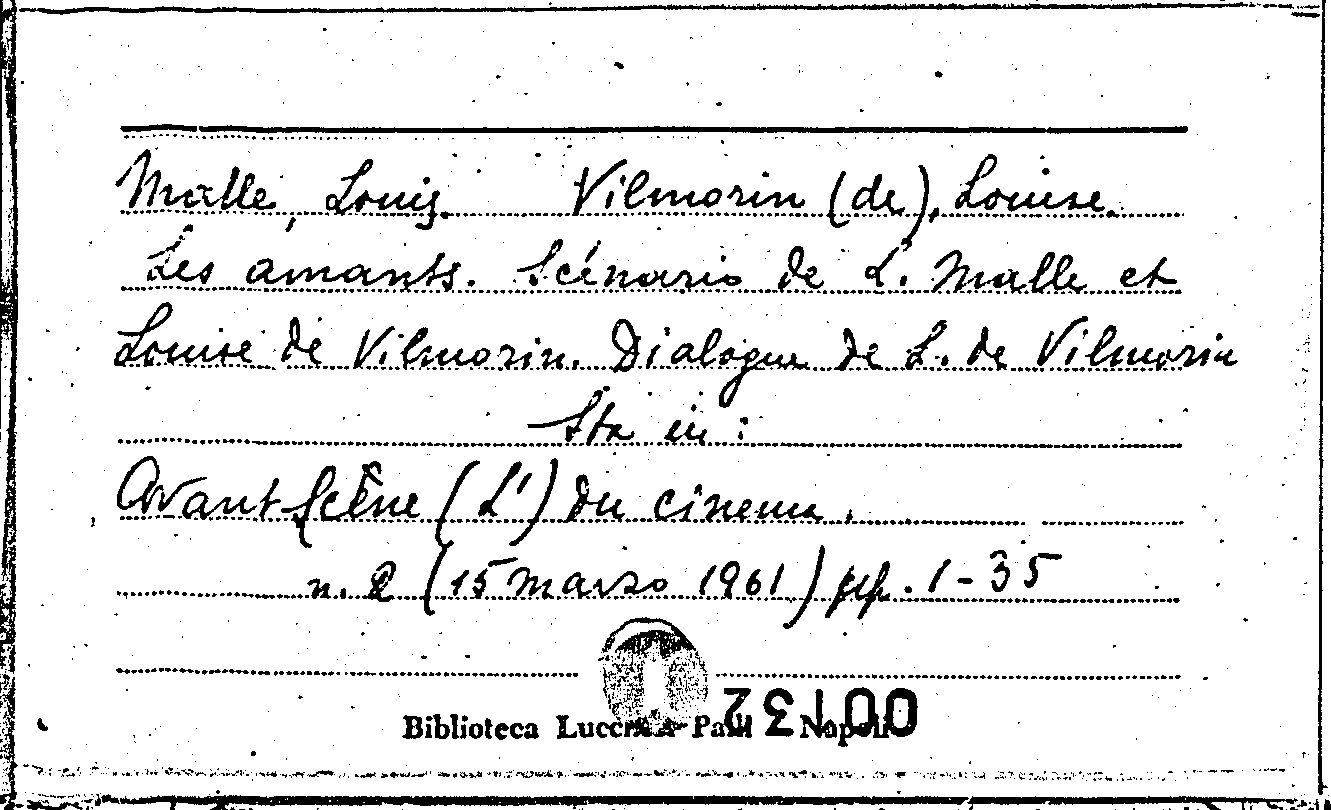 Malle, Louis. Vilmorin (de), Louise.
Les amants. Scénario de L. Malle et
Louise de Vilmorin. Dialogue de L. de Vilmorin
Sta in:
Avant Scène (L') du cinema.
n. 2 (15 marzo 1961) pp. 1-35
00132
Biblioteca Lucchesi-Palli Napoli